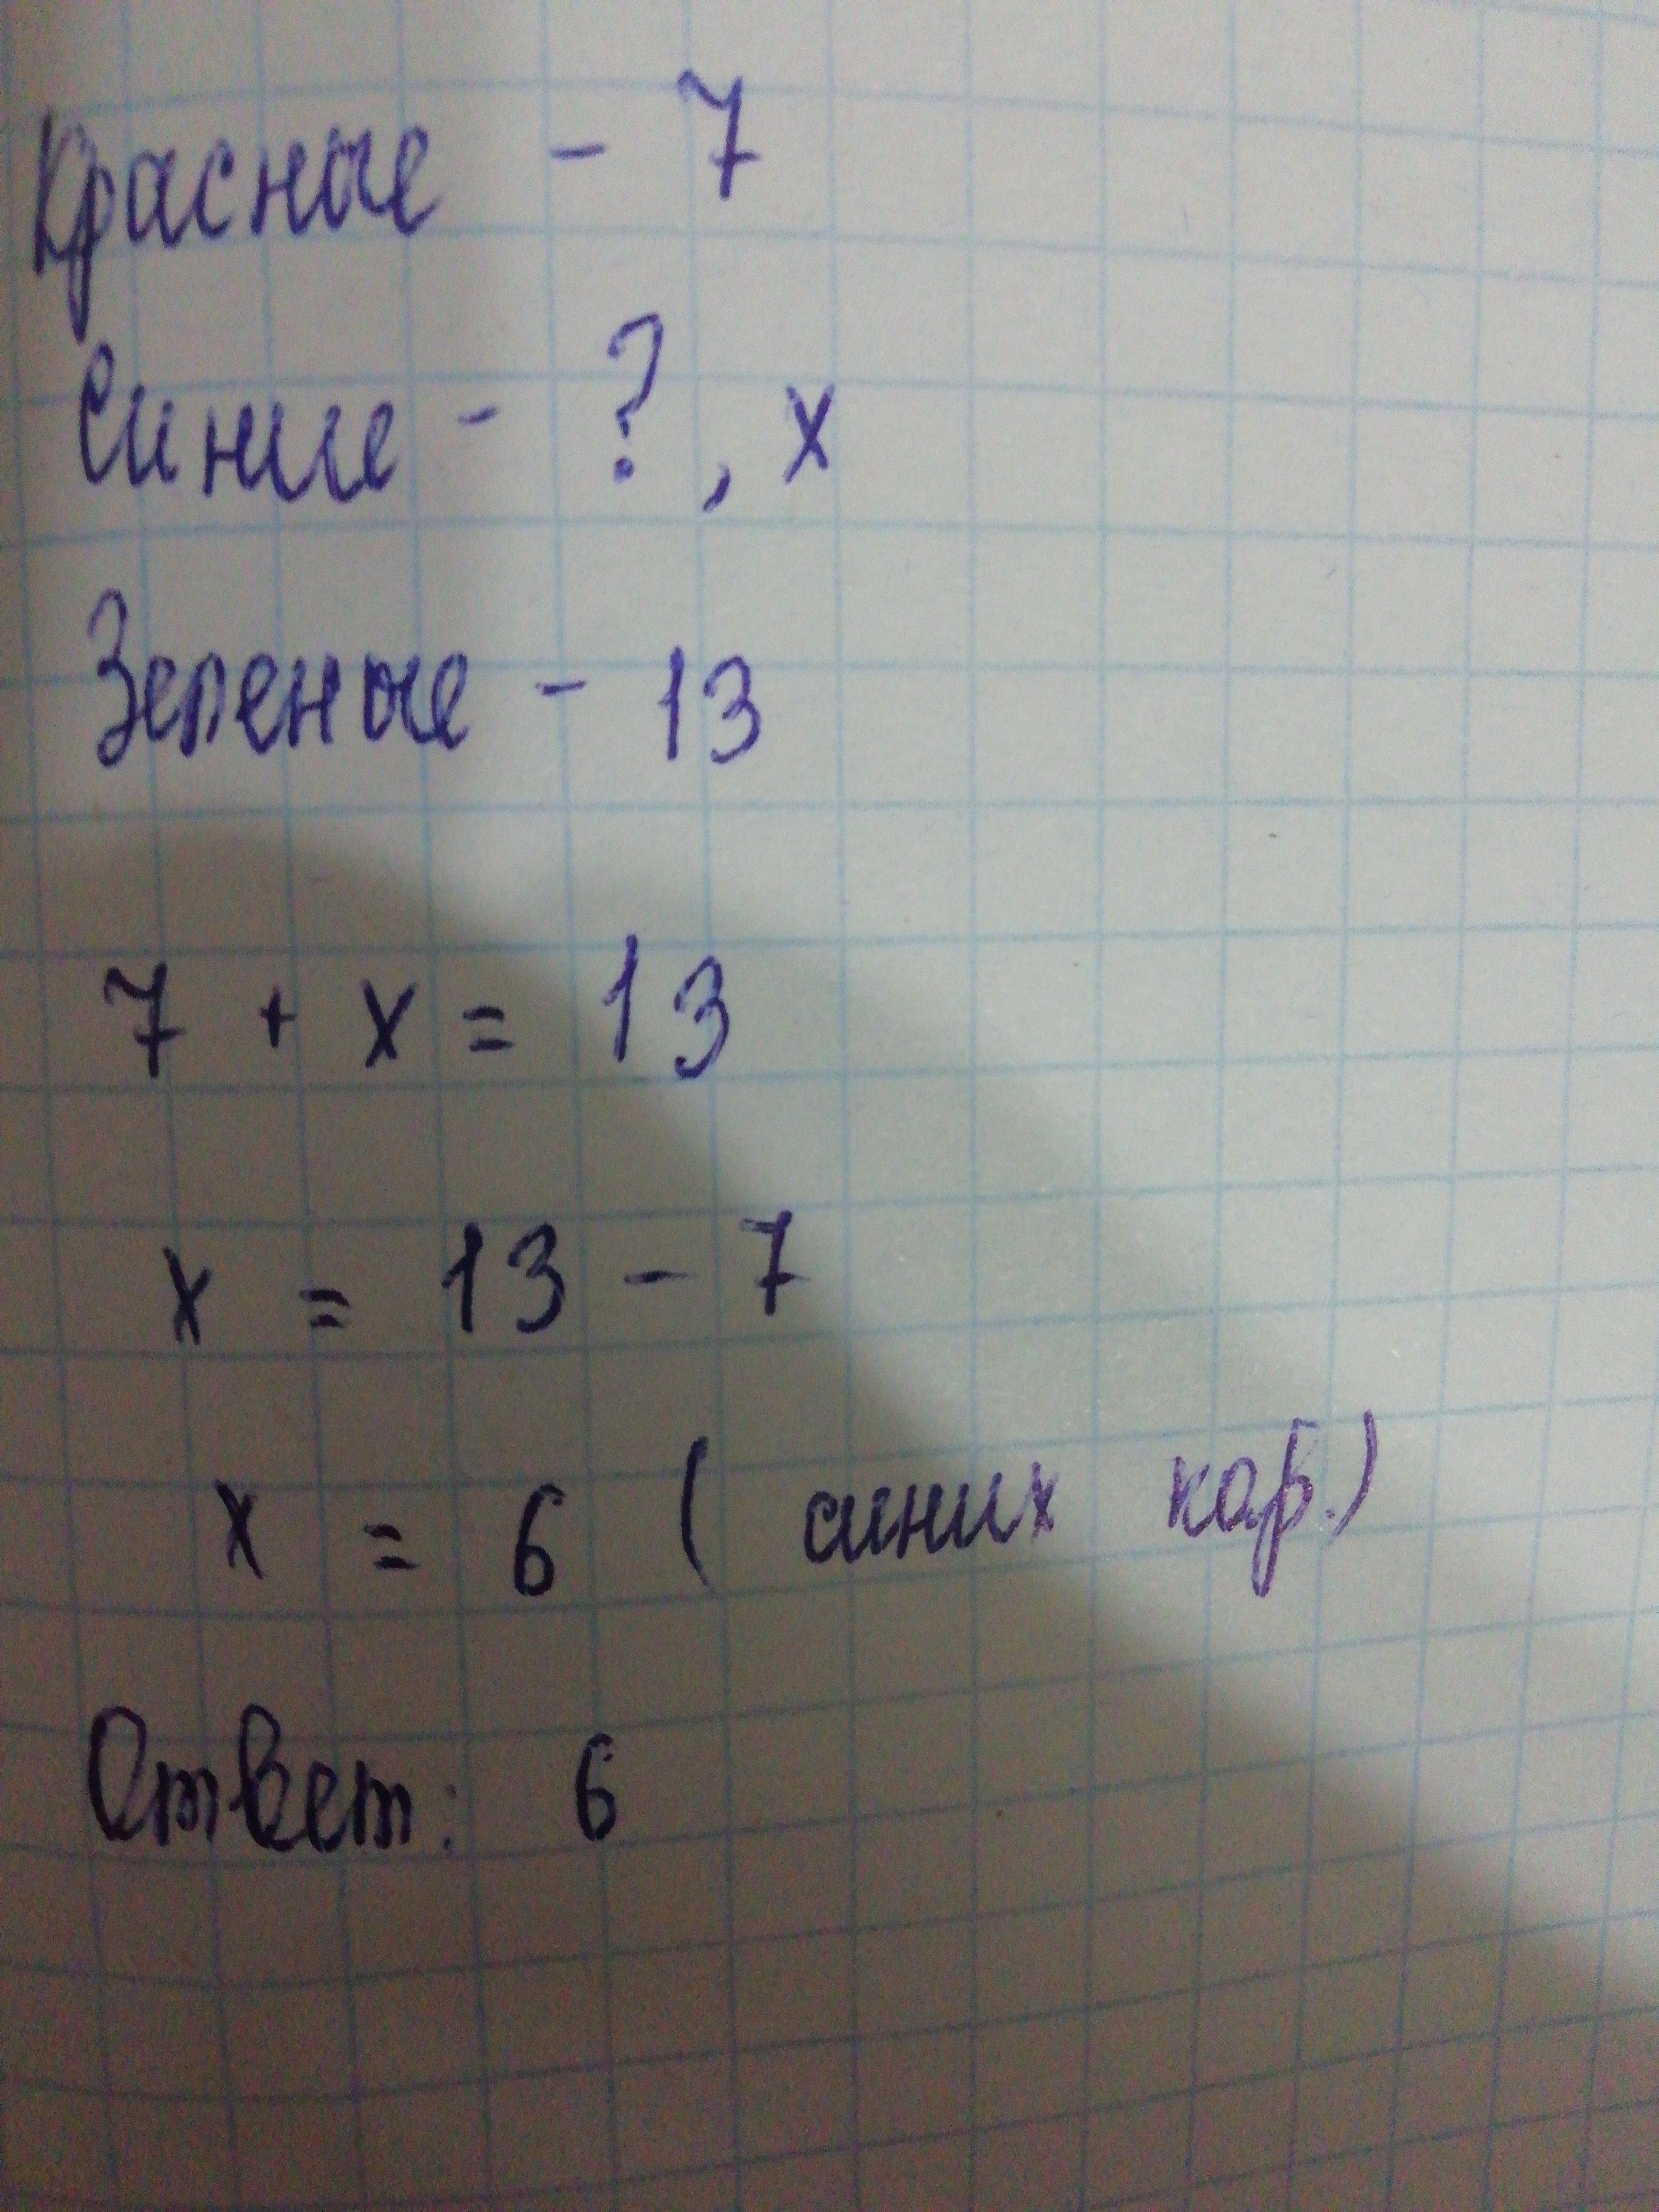 Красные - 7
Синие - ?, х
Зеленые - 13
7 + х = 13
х = 13 - 7
х = 6 (синих кар.)
Ответ: 6